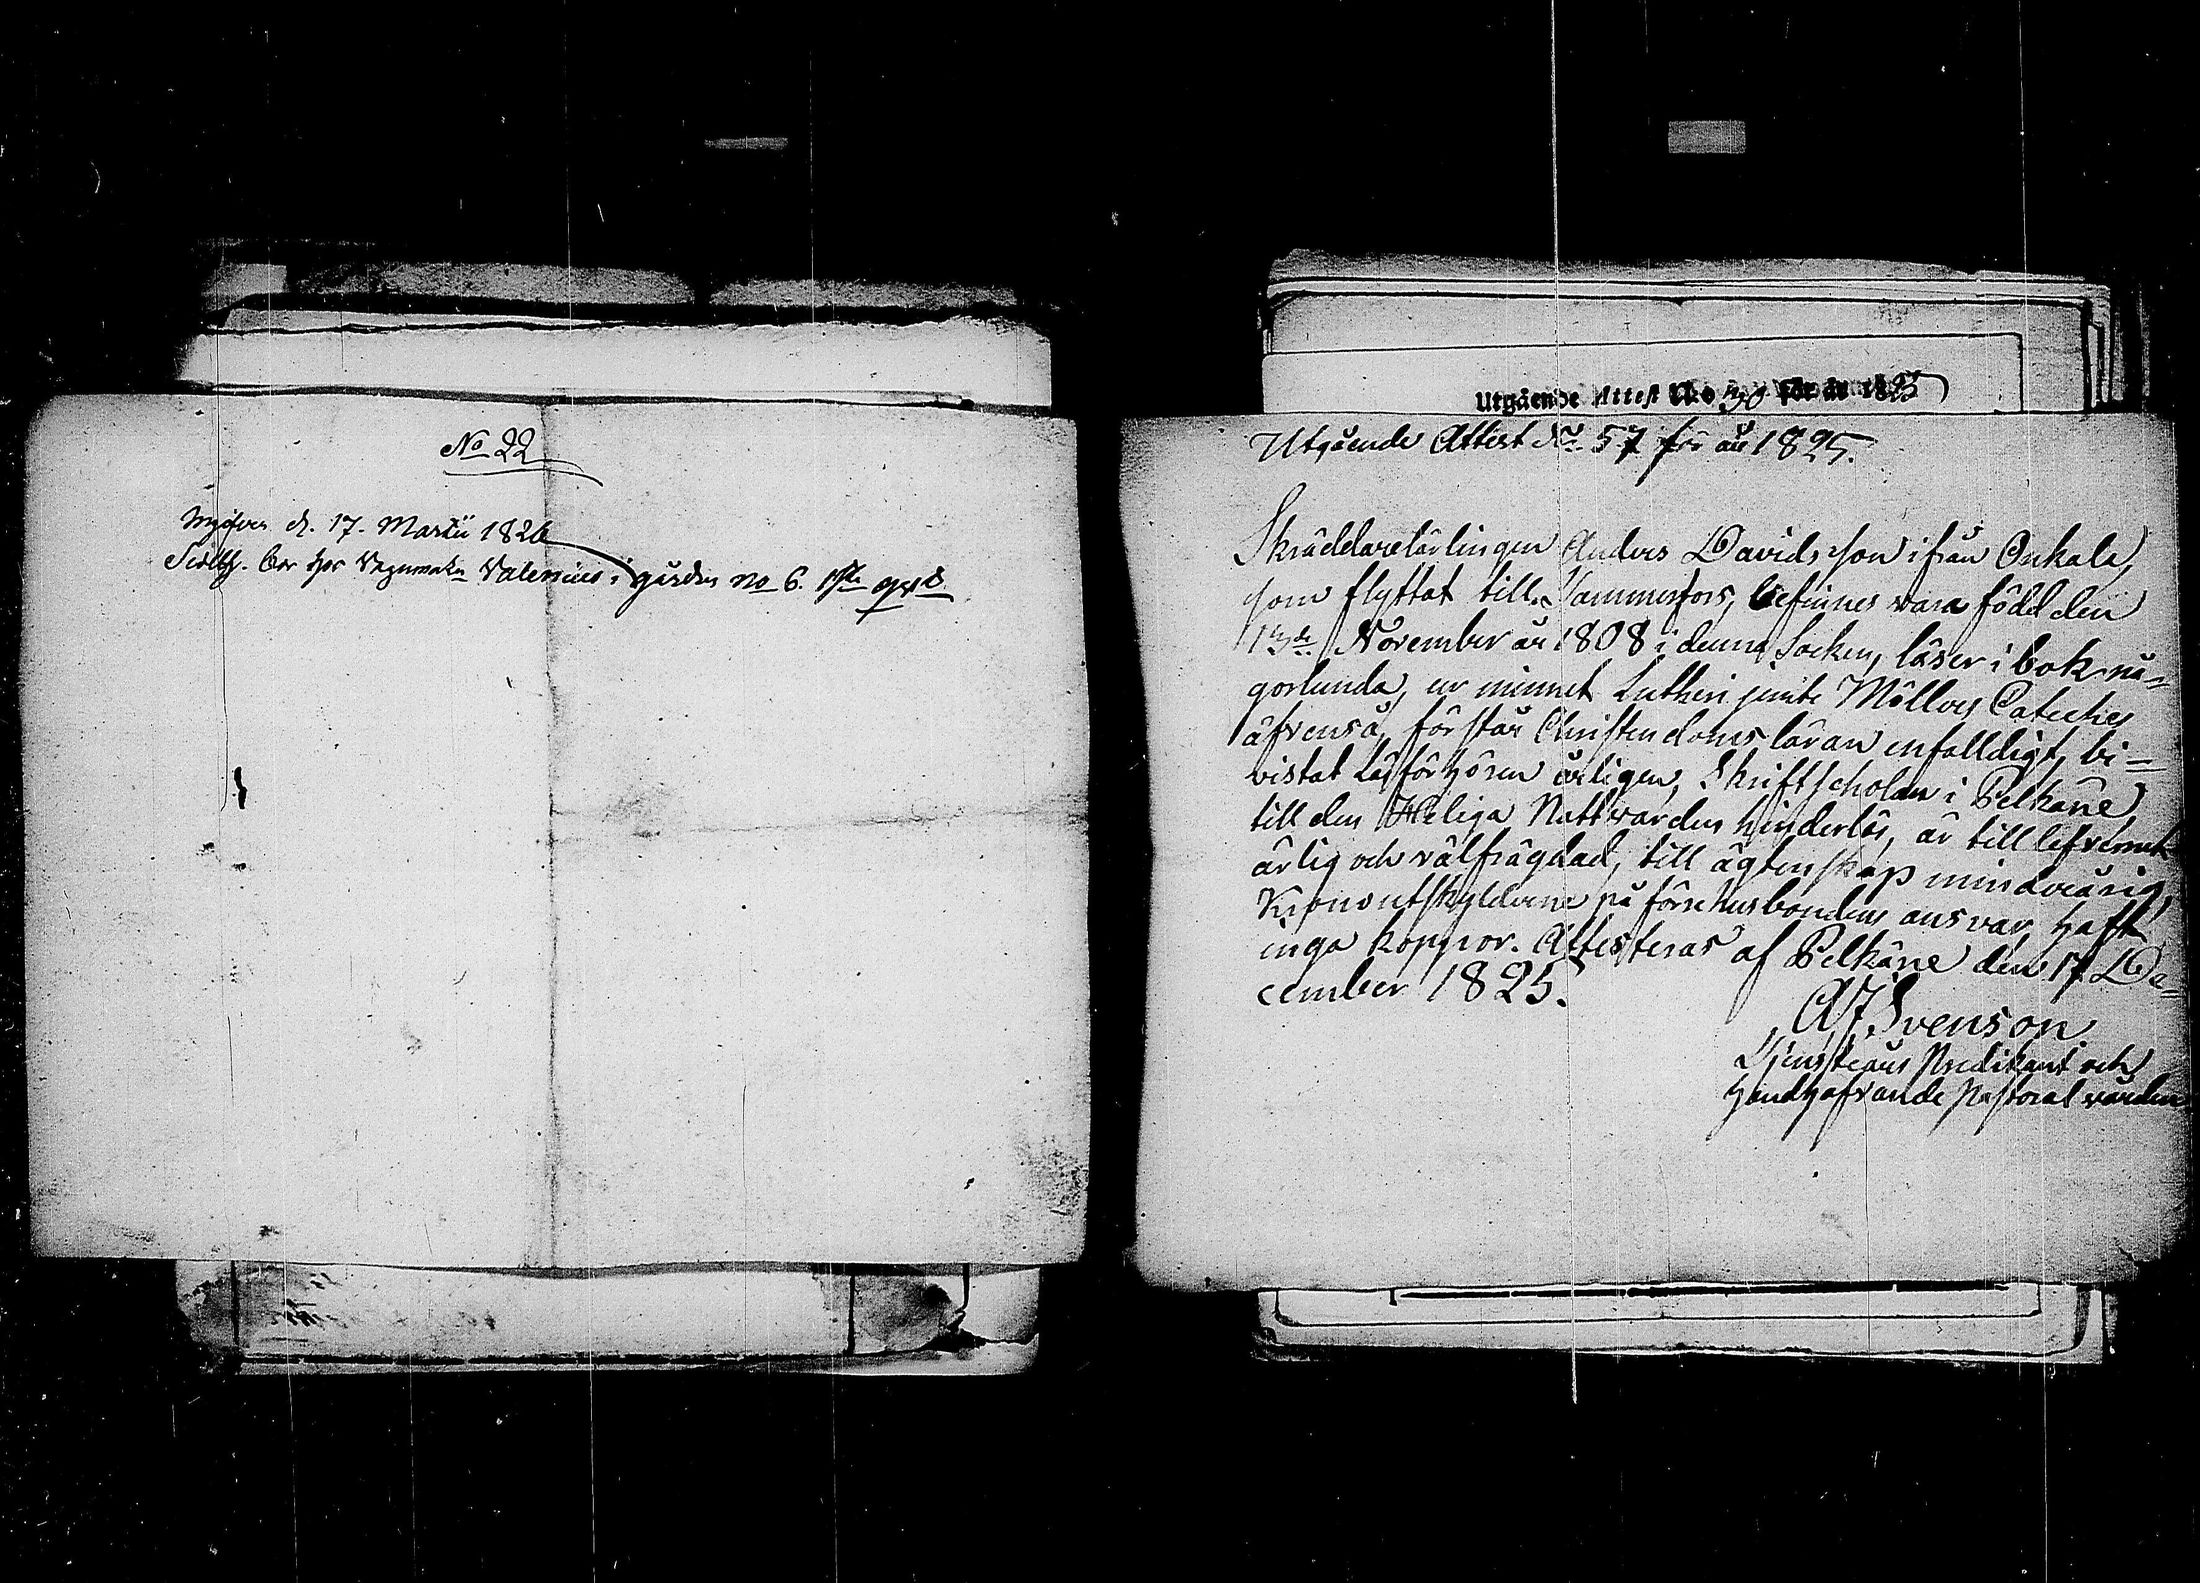 No 22
d. 17. Martii 1826
Bor hos Valenius i gården No 6. 1sta qvd
Utgående Attest No 30 för år 1825
Utgående Attest No. 57 för år 1825.
Skräddarelärlingen Anders Davidsson ifrån Onkala,
som flyttat till Tammerfors, befinnes vara född den
13de November år 1808 i denna Socken, läser i bok nå=
gorlunda, ur minnet Lutheri jemte Möllers Cateches
äfvenså, förstår Christendoms läran enfalldigt, bi=
vistat Läsförhören årligen, Skriftscholan i Pelkäne,
till den Heliga Nattvarden hinderlös, är till lefvernet
ärlig och välfrägdad, till ägtenskap minderårig,
Kronoutskylderne på förre husbondens ansvar, haft
inga koppor. Attesteras af Pelkäne den 17 De=
cember 1825.
A J Svenson
Tjenstgörande Predikant och
handhafvande Pastoral vården